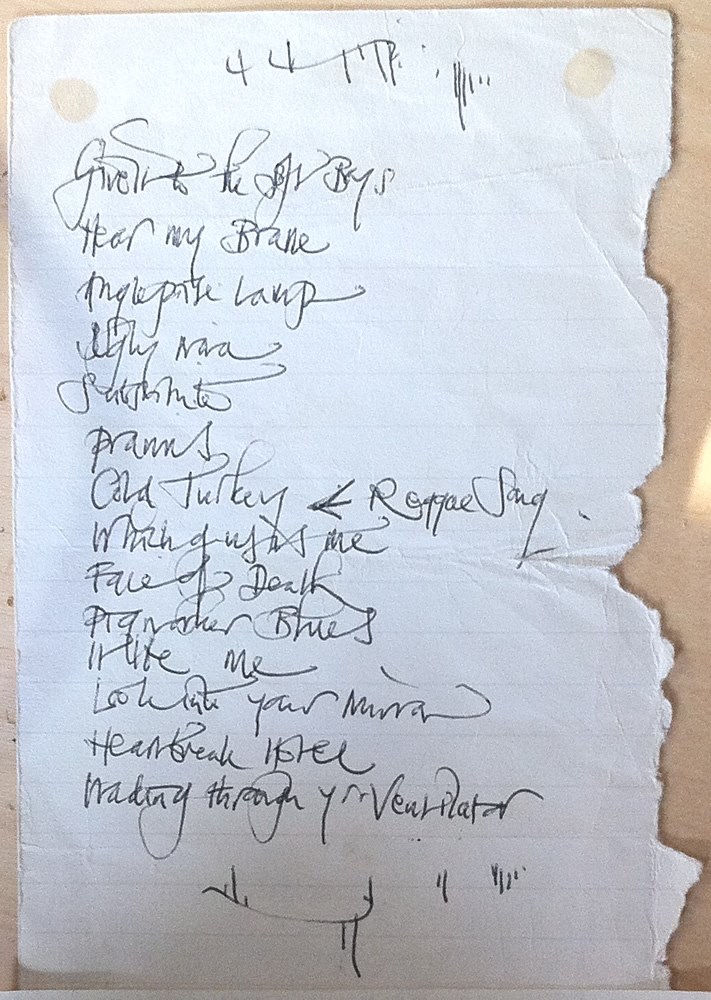 Give it to the Soft Boys
Hear my Brane
Anglepoise Lamp
Ugly Nora
Substitute
Pranns
Cold Turkey < Reggae Song
Which of us is me
Face of Death
Pigworker Blues
It's me
Look into your Mirror
Heartbreak Hotel
Wading through yr Ventilator